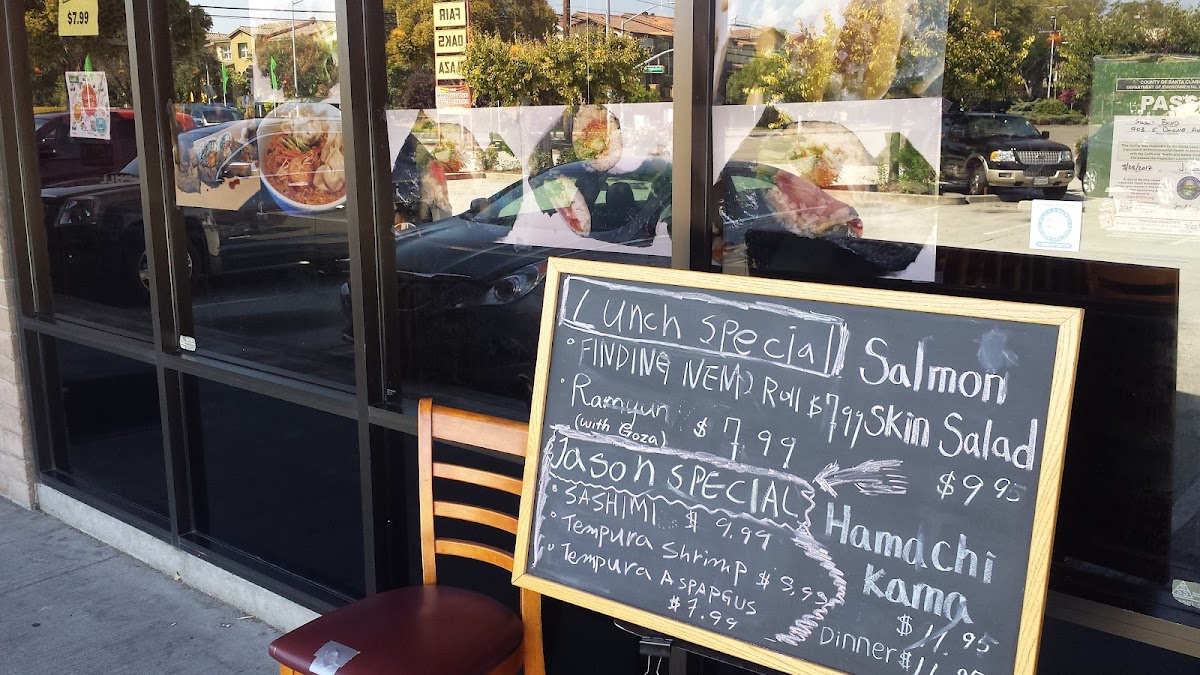 $7.99
FAIR
OAKS
PLAZA
COUNTY OF SANTA
DEPARTMENT OF ENVIRONMENTAL
PASS
Lunch special
° FINDING NEMO Roll $7.99
° Ramyun $7.99
(with Goza)
Jason SPECIAL
° SASHIMI $9.99
° Tempura Shrimp
° Tempura ASPAPGUS
$7.99
Salmon
Skin Salad
$9.95
Hamachi
Kama
$11.95
Dinner $11.95